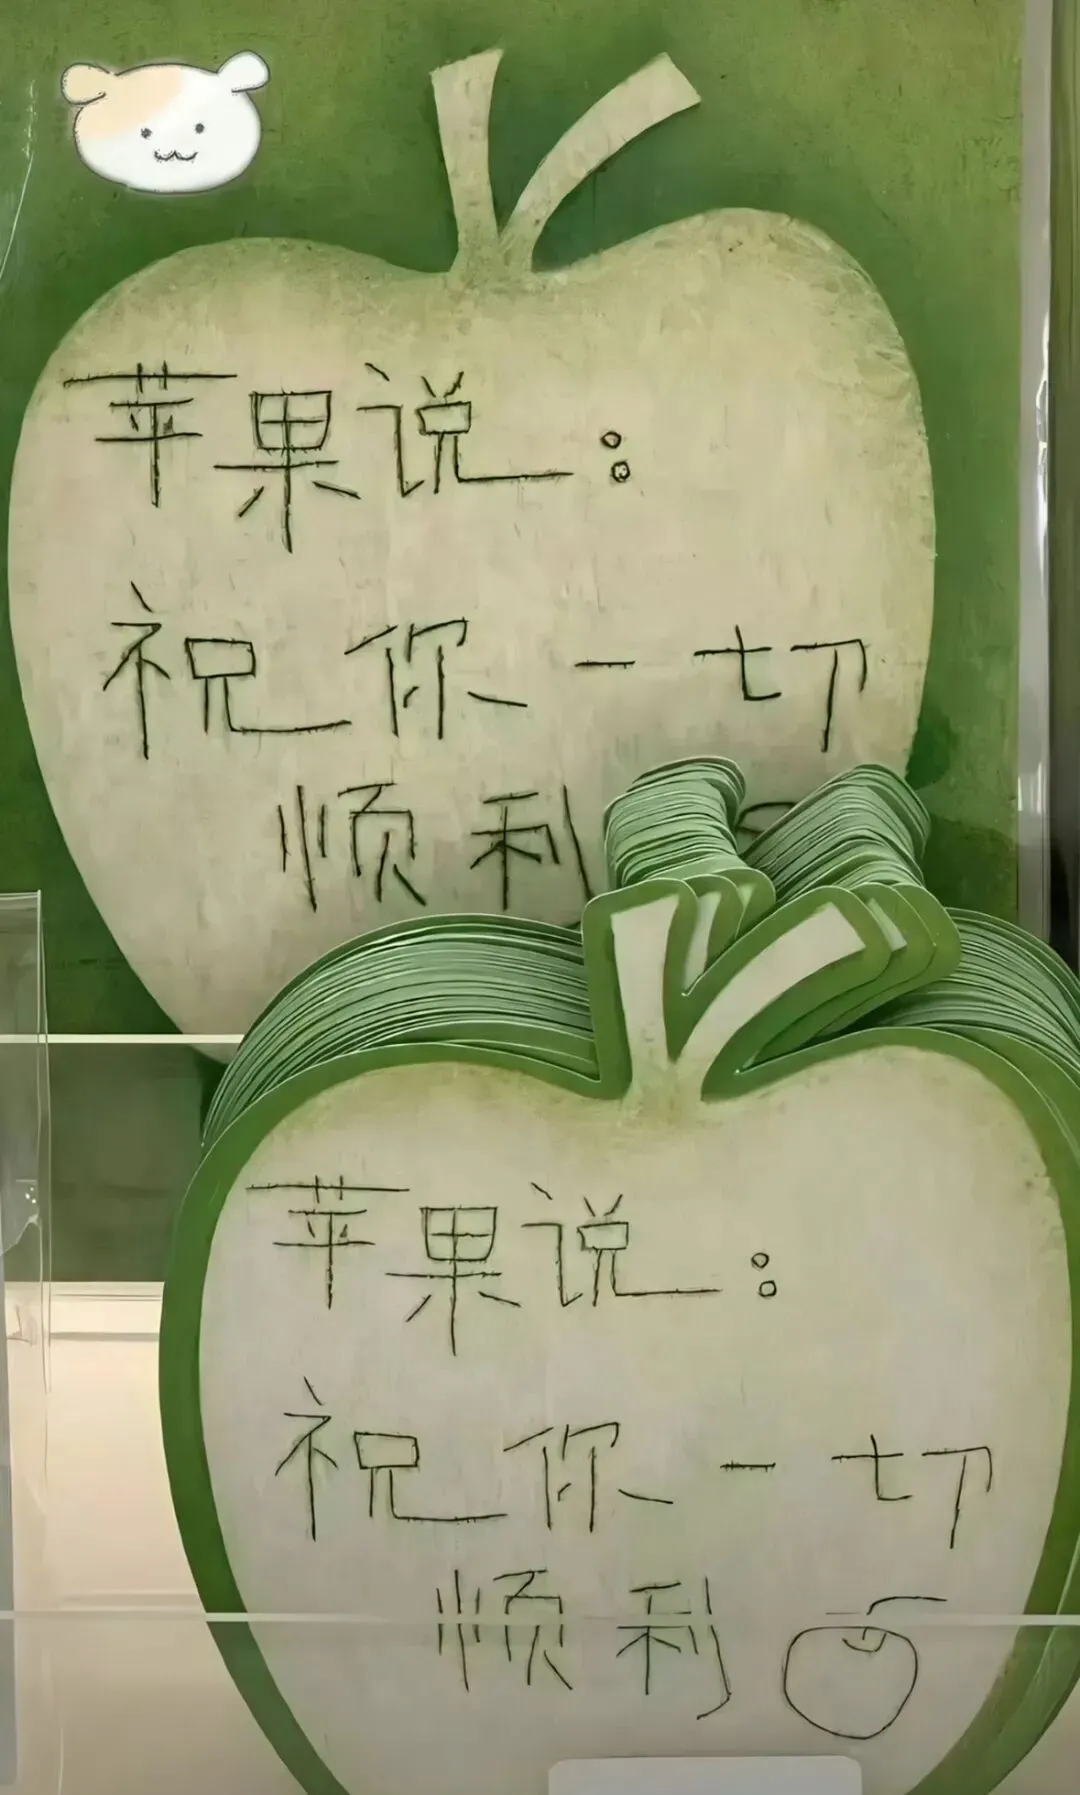 苹果说：
祝你一切
顺利
苹果说：
祝你一切
顺利